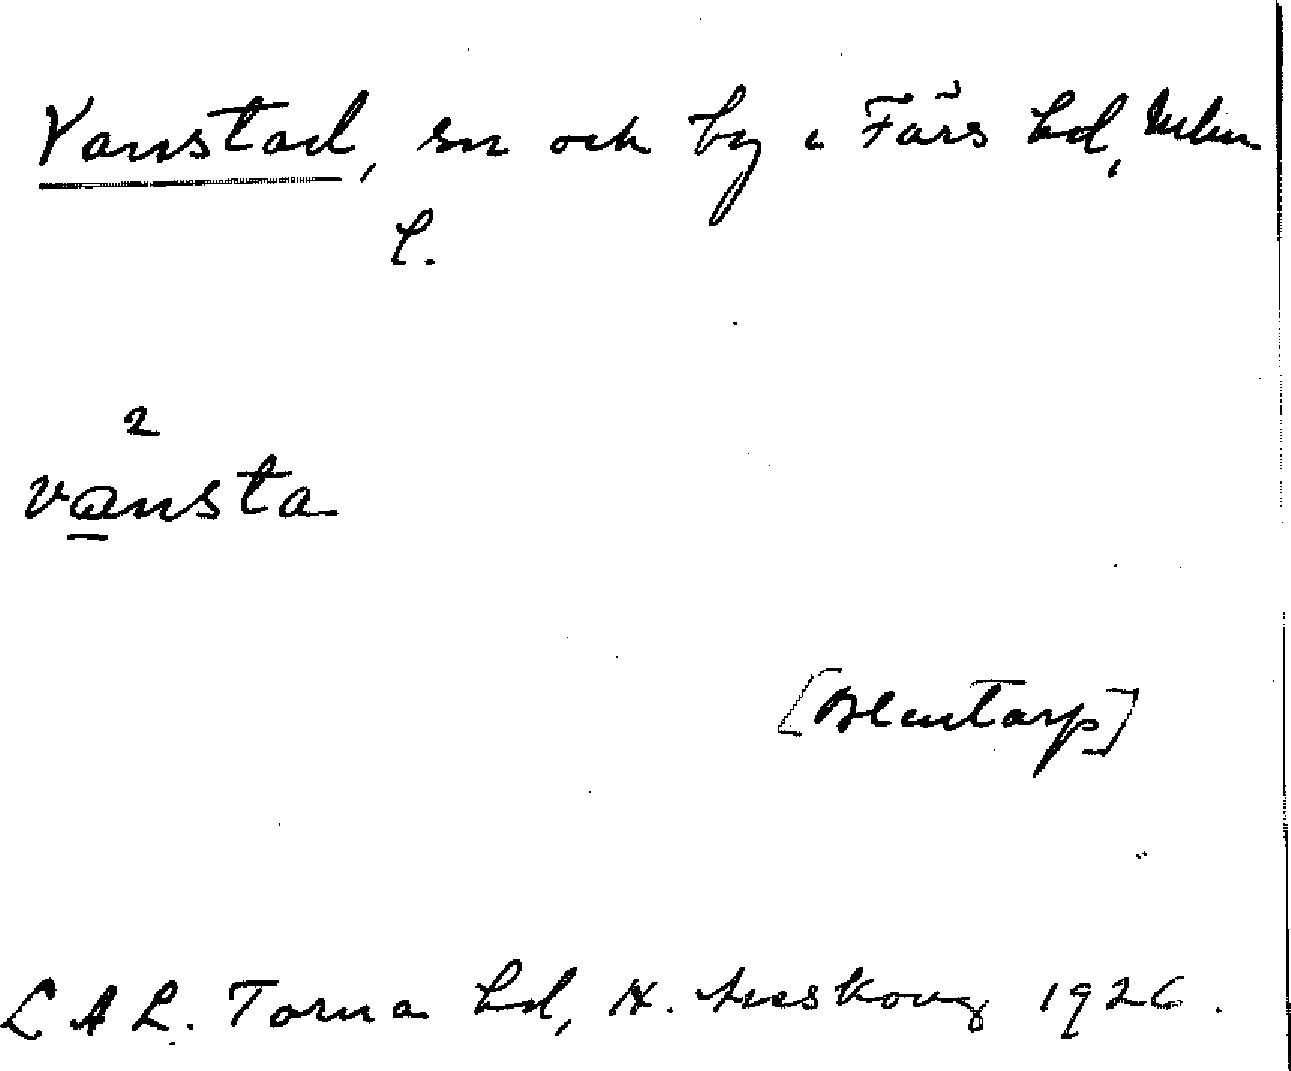 Vanstad, sn och by i Färs hd, Malm
l.
2
vansta
[Blentarp]
L A L. Torna hd, N. 1926.